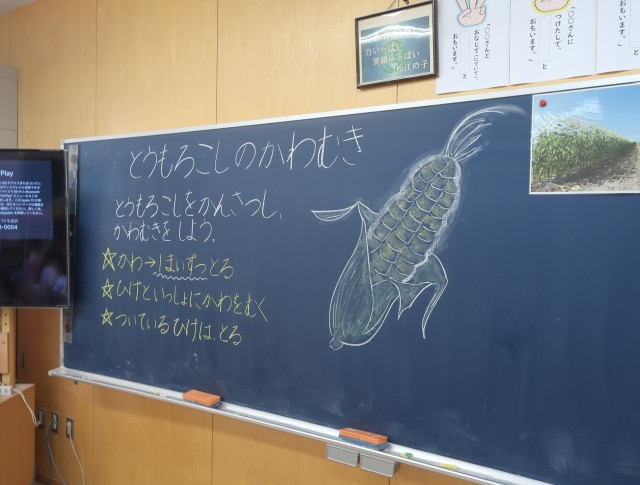 とうもろこしのかわむき
とうもろこしをかんさつし、
かわむきをしよう。
☆かわ→1まいずつとる
☆ひげといっしょにかわをむく
☆ついているひげは、とる
力いっぱい
笑顔いっぱい
松江の子
「〇〇さんと
おなじで(にていて)、
と
おもいます。」
「〇〇さんに
つけたして、
と
おもいます。」
と
おもいます。」
Play
-0004